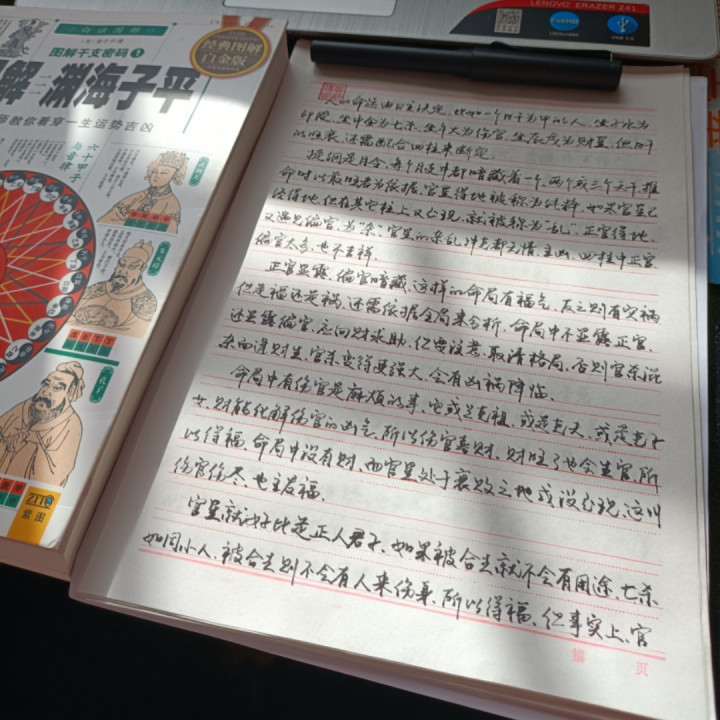 LENOVO ERAZER Z41
FullHD
白话图解
图解干支密码1
经典图解
白金版
图解 渊海子平
教你看穿一生运势吉凶
六十甲子
与音律
孔子
ZITO
紫图
人的命运由日主决定,比如一个日干为中的人,生子水为
印绶,生申金为七杀,生午火为伤官,生辰戌为财星,但日干
以旺衰,还需配合四柱来断定。
提纲是月令,每个月支中都暗藏着一个、两个或三个天干,推
命时以最旺者为依据,官星得地被称为此料,如果官星已
经得地,但在其它柱上又出现,就被称为乱,正官得地,
又遇见偏官,为“杂”官星的杂乱冲克都无情,主凶,四柱中正官
偏官太多,也不吉祥。
正官显露,偏官暗藏,这样的命局有福气,反之则有灾祸
但是福还是祸,还需依据全局来分析,命局中不显露正官,
还显露偏官,应向财求助,但要注意,取清格局,否则官杀混
杂而逢财生,官杀变得更强大,会有凶祸降临。
命局中有伤官是麻烦的事,它或是克祖,或是克夫,或是克子
女,财能化解伤官的凶气,所以伤官喜财,财旺了也会生官,所
以得福,命局中没有财,而官星处于衰败之地或没出现,这叫
伤官伤尽,也主发福。
官星就好比是正人君子,如果被合去就不会有用途,七杀
如同小人,被合去则不会有人来伤身,所以得福,但事实上,官
第 页